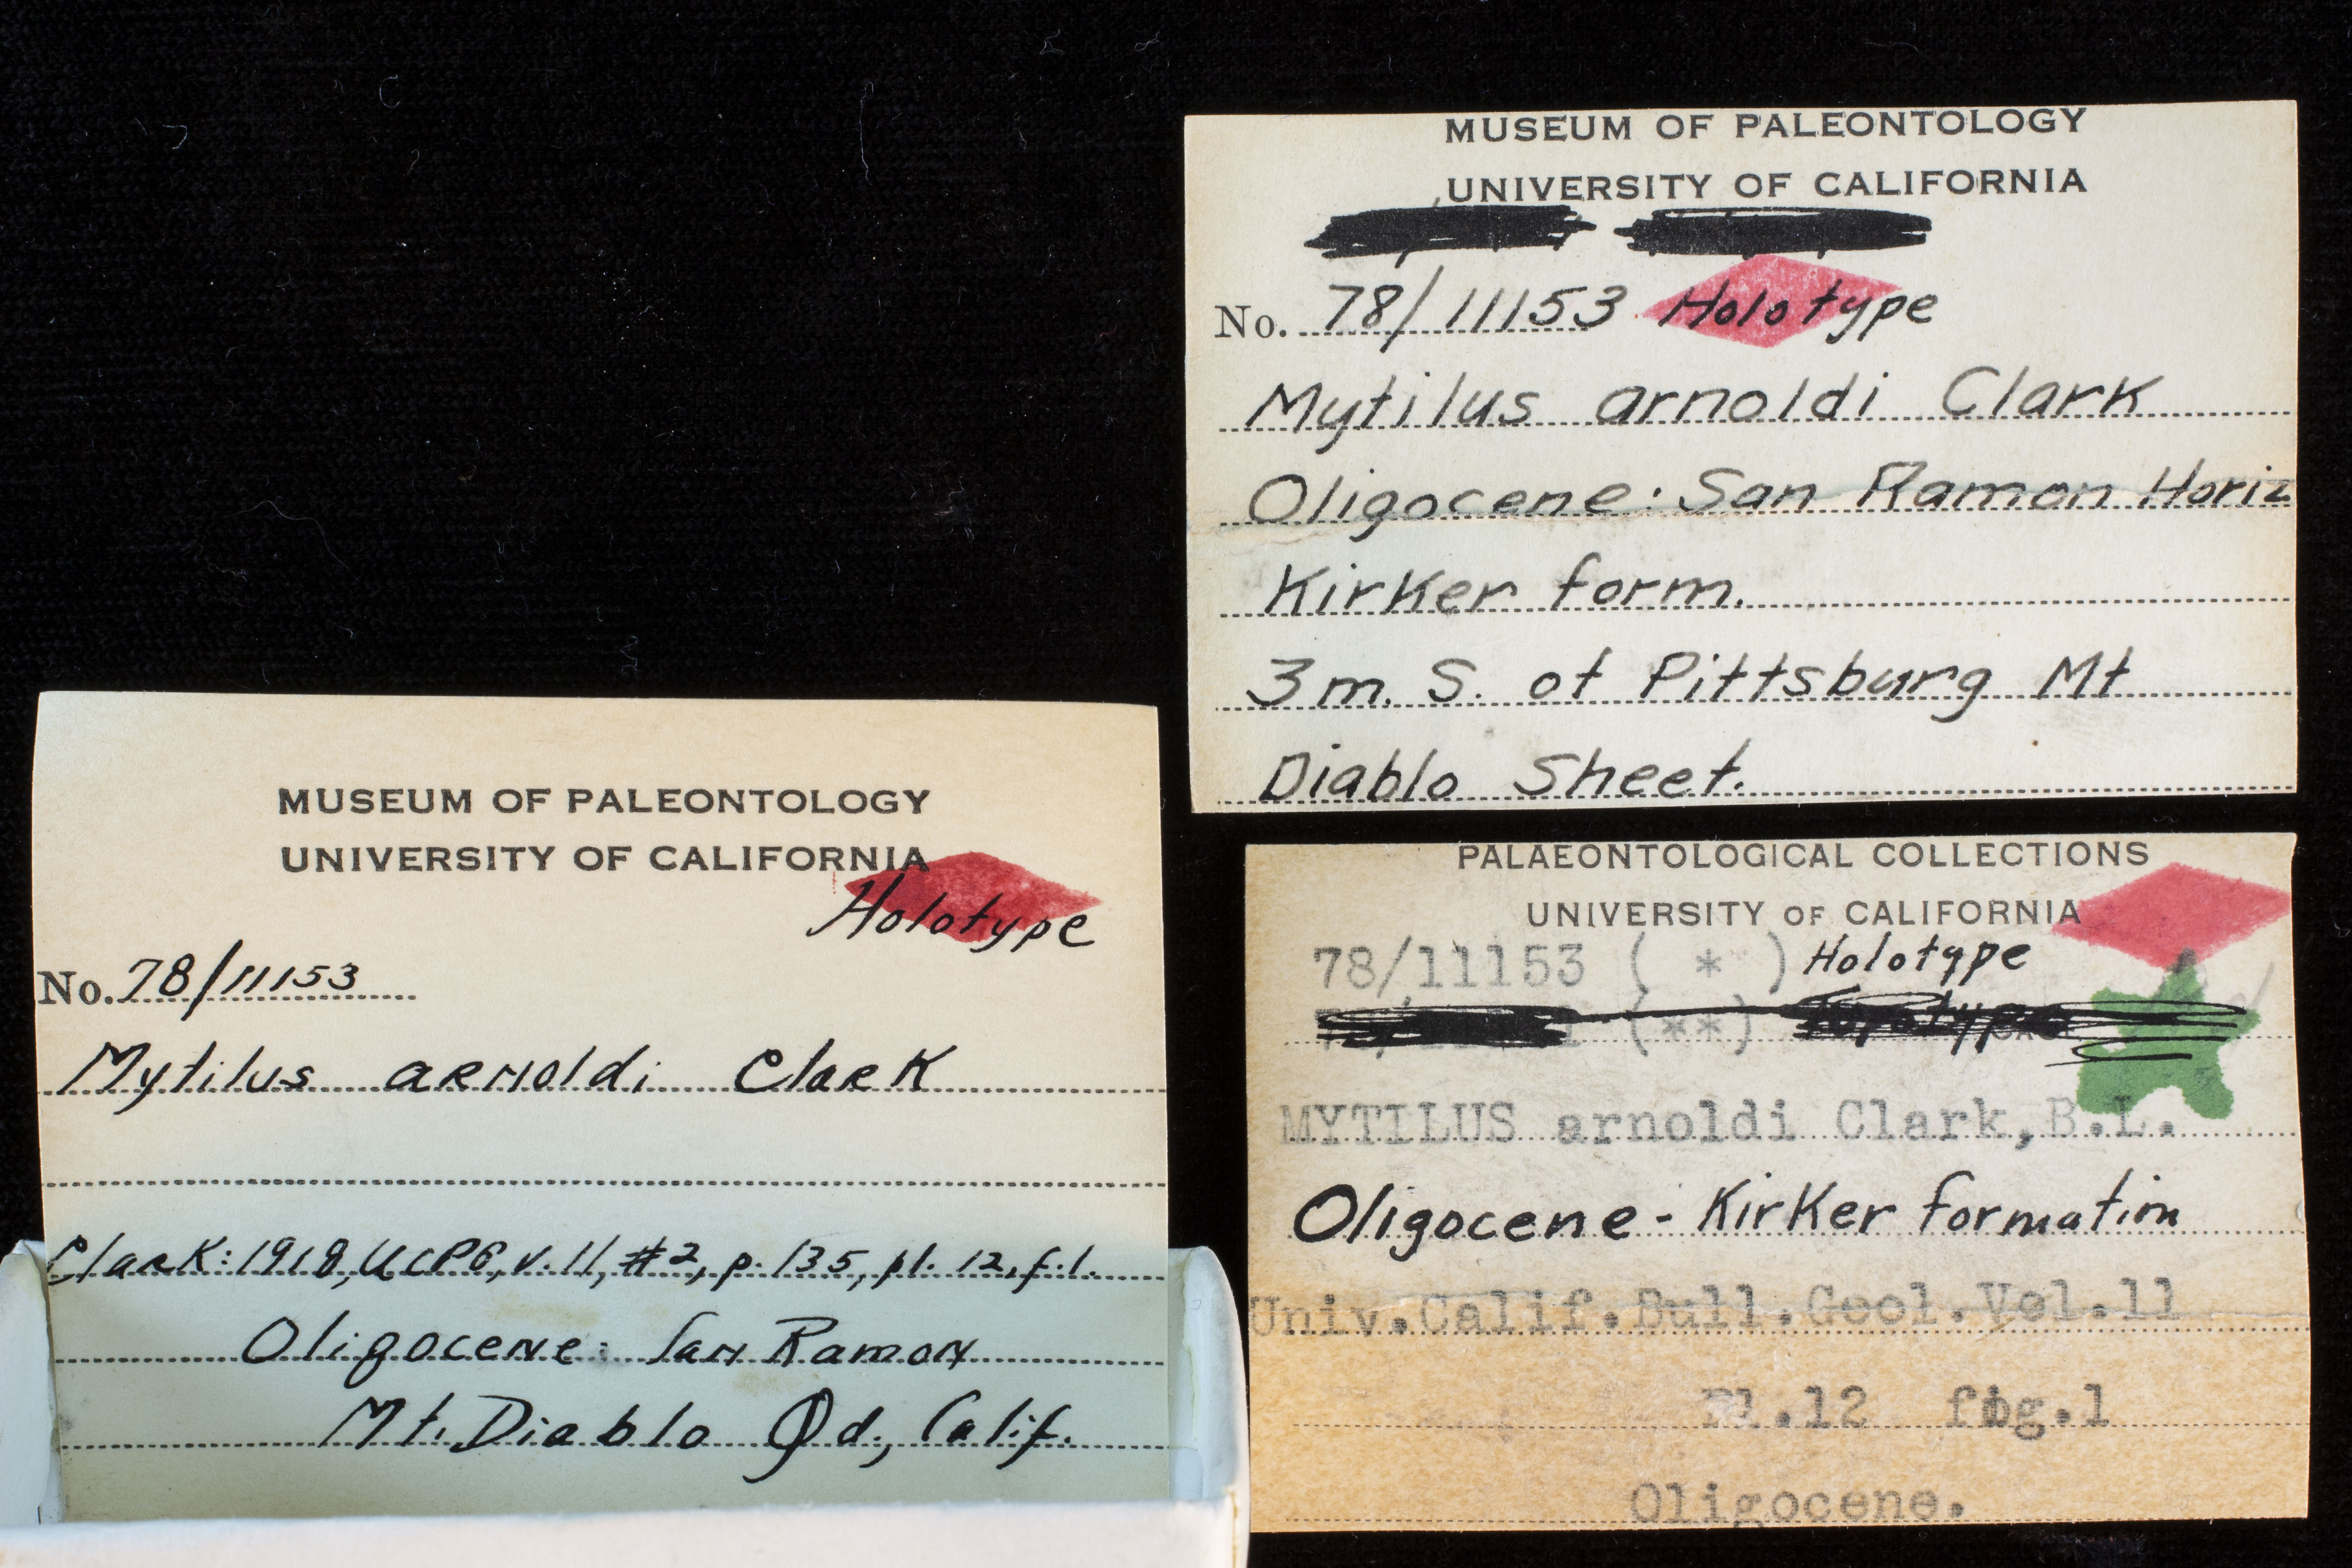 MUSEUM OF PALEONTOLOGY
UNIVERSITY OF CALIFORNIA
No. 78/11153 Holotype
Mytilus arnoldi Clark
Oligocene: San Ramon Horiz
Kirker form.
3 m. S. of Pittsburg Mt
Diablo Sheet.
MUSEUM OF PALEONTOLOGY
UNIVERSITY OF CALIFORNIA
Holotype
No. 78/11153
Mytilus arnoldi Clark
Clark: 1918, UCPG, v. 11, #2, p. 135, pl. 12, f. 1.
Oligocene: San Ramon
Mt. Diablo Qd., Calif.
PALAEONTOLOGICAL COLLECTIONS
UNIVERSITY OF CALIFORNIA
78/11153 ( * ) Holotype
(**)
MYTILUS arnoldi Clark, B.L.
Oligocene - Kirker formation
Univ.Calif.Bull.Geol.Vol.11
Pl.12 fig.1
Oligocene.